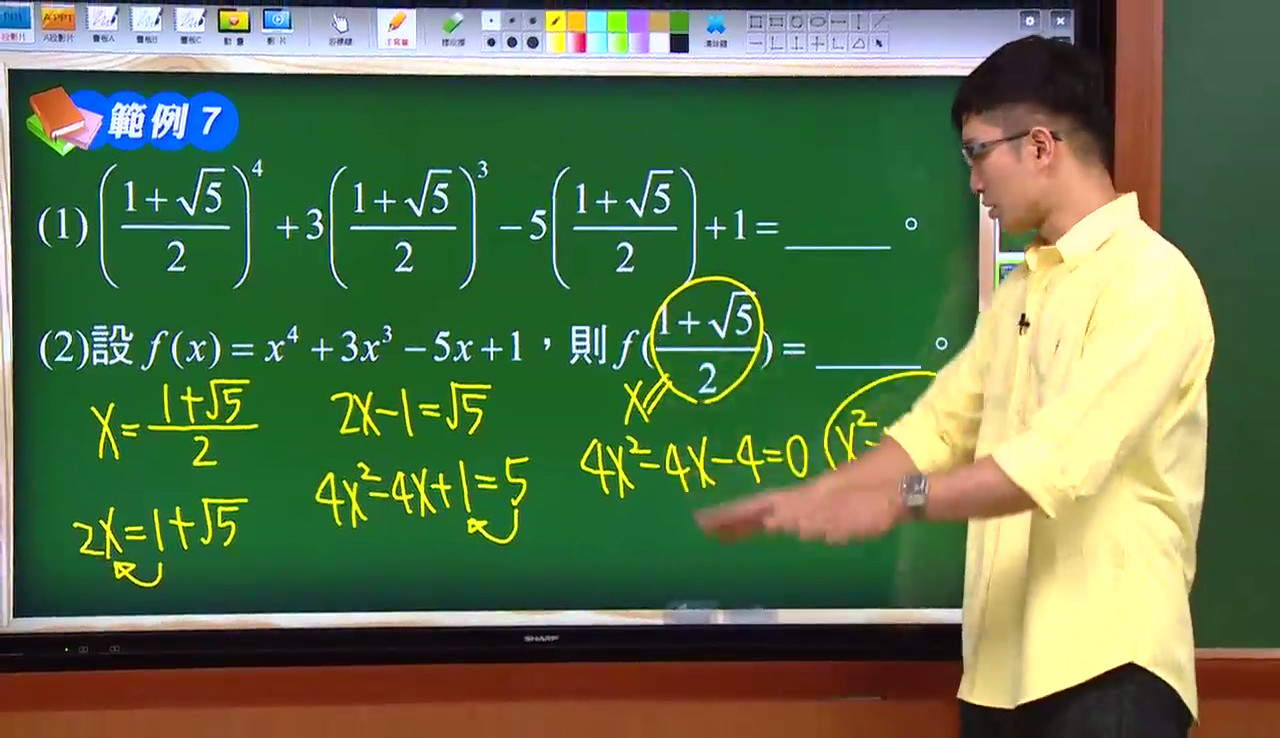 範例 7
(1) ((1+√5)/2)^4 + 3((1+√5)/2)^3 − 5((1+√5)/2) + 1 = ______ 。
(2) 設 f(x) = x^4 + 3x^3 − 5x + 1，則 f((1+√5)/2) = ______ 。
x = (1+√5)/2
2x = 1+√5
2x−1 = √5
4x²−4x+1 = 5
x =
4x²−4x−4 = 0
x²−
SHARP